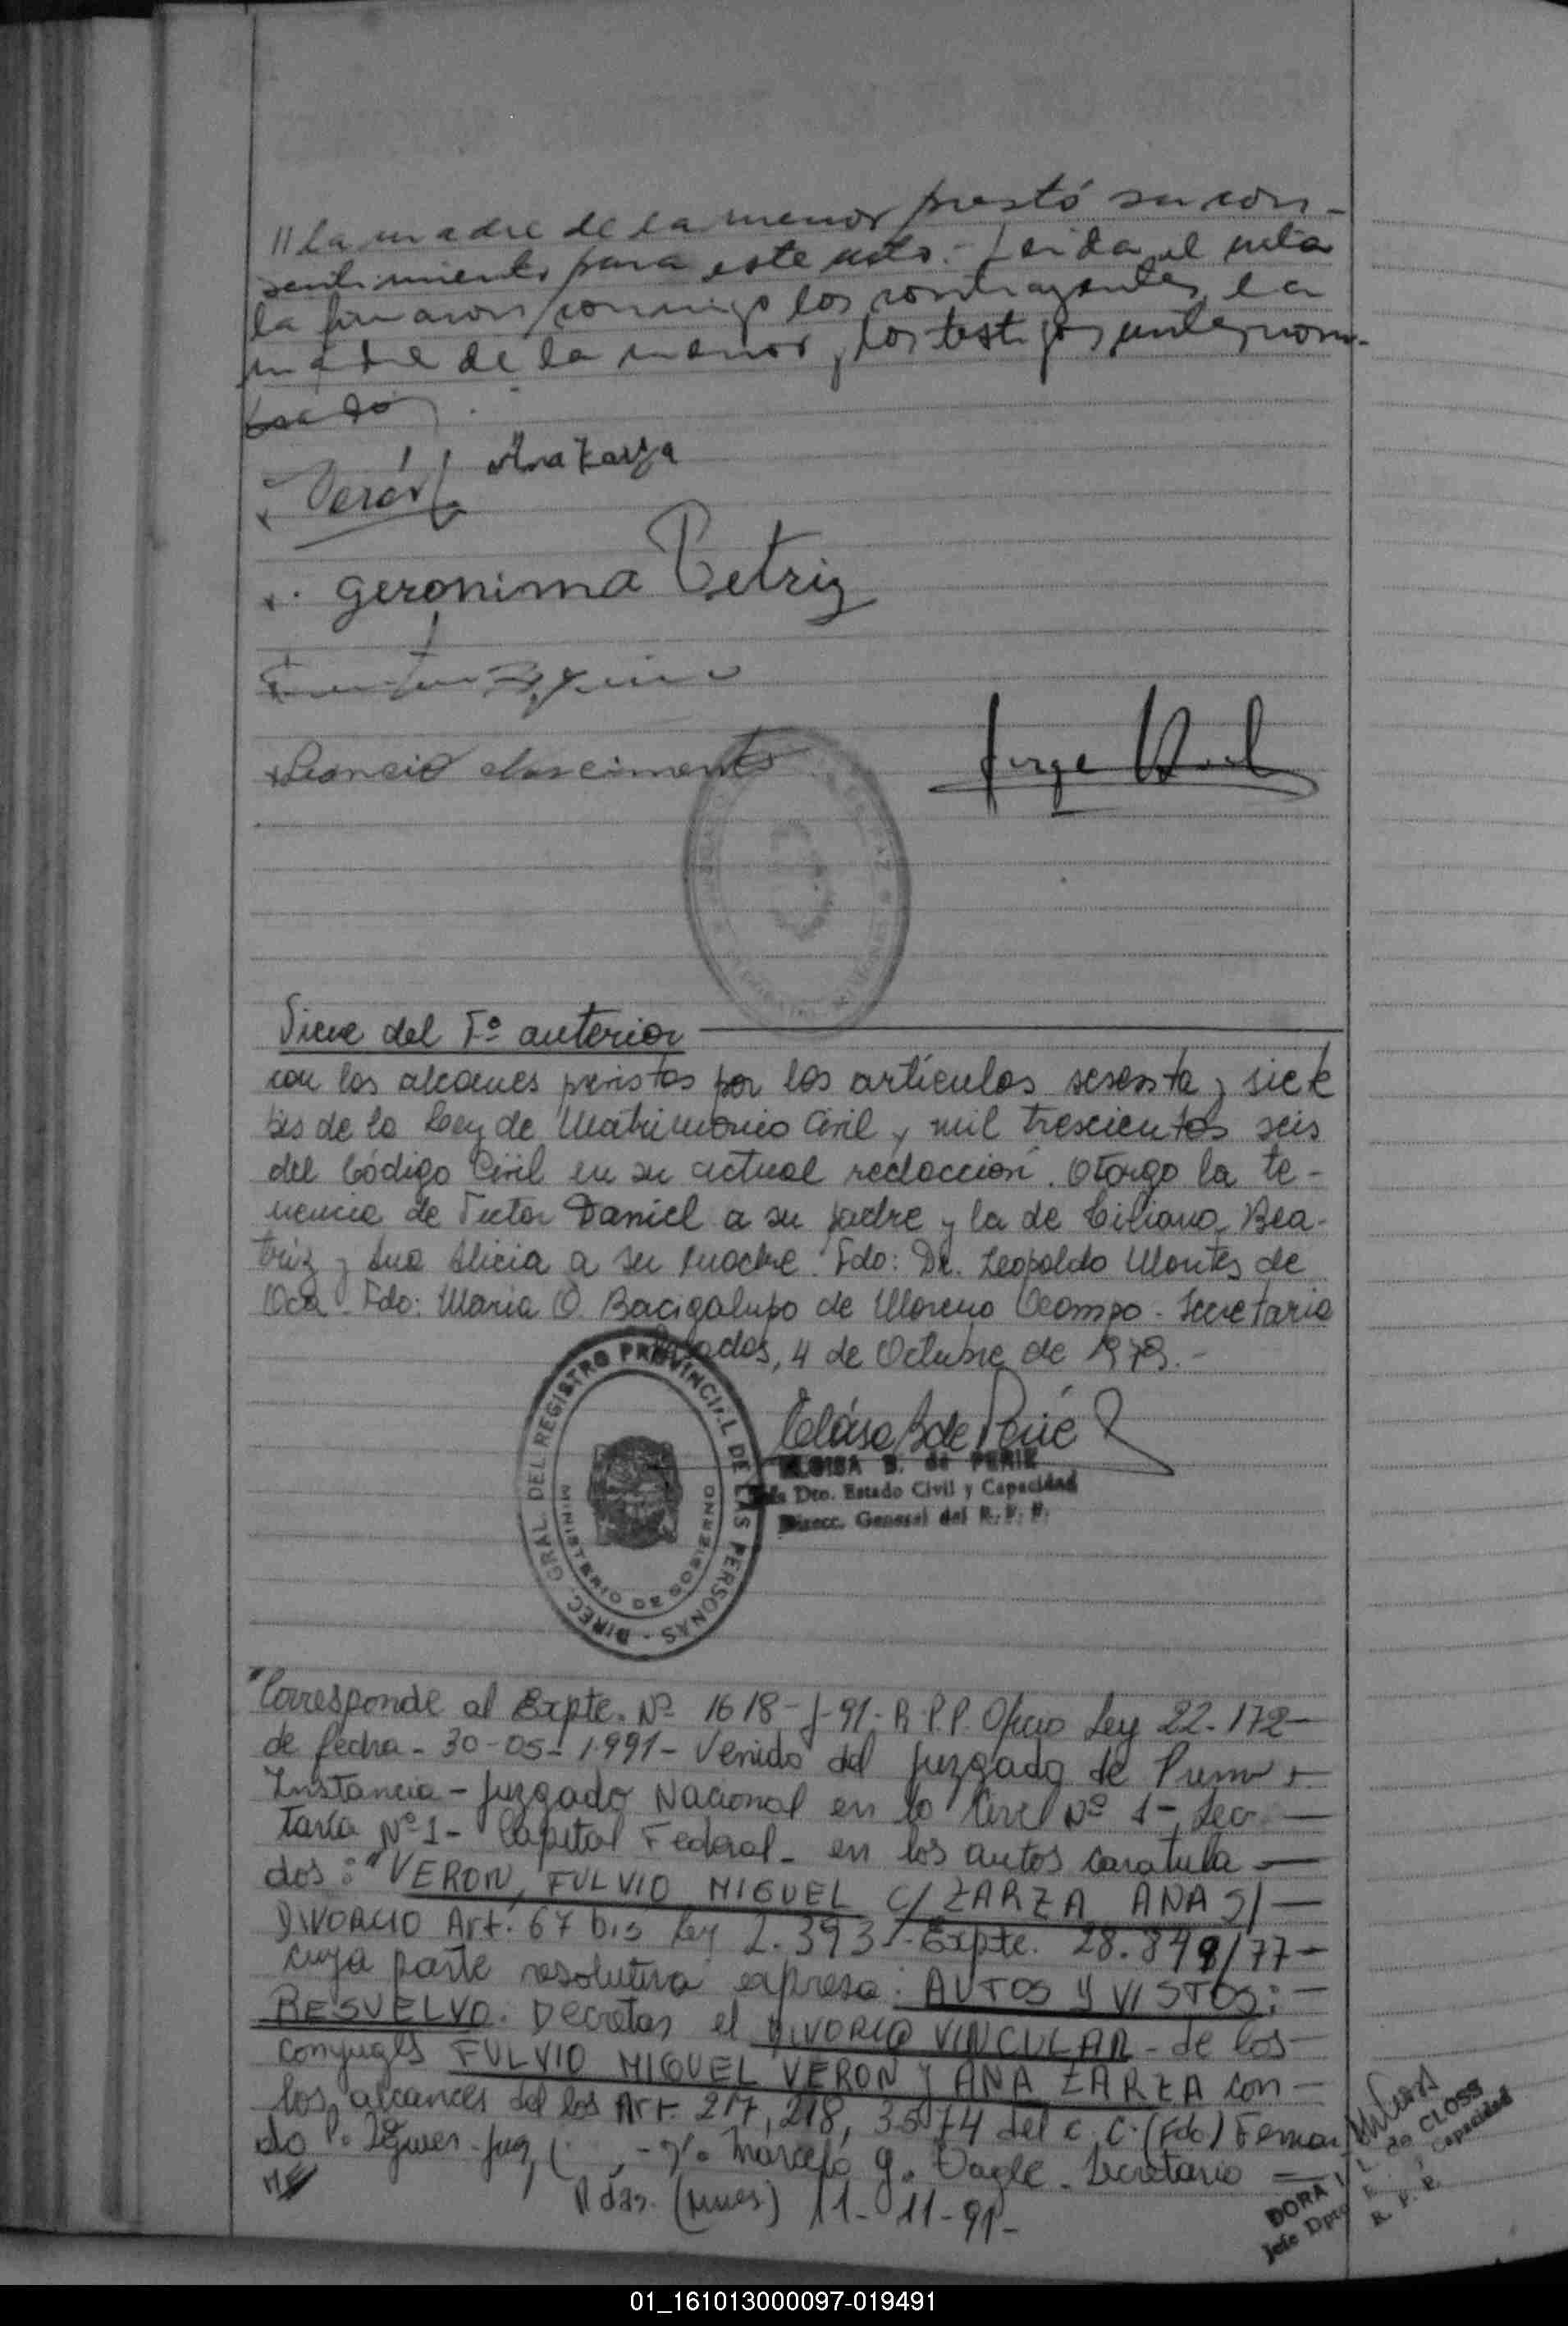 // La madre de la menor prestó su con-
sentimiento para este acto.- Leida el acta
la firmaron conmigo los contrayentes, la
madre de la menor y los testigos antenom-
brados.
Verón Ana Zarza
Geronima Petriz
Leoncio Nascimento
Jorge
Viene del Fº anterior
con los alcances previstos por los artículos sesenta y siete
bis de la Ley de Matrimonio Civil y mil trescientos seis
del Código Civil en su actual redacción. Otorgo la te-
nencia de Victor Daniel a su padre y la de Liliana Bea-
triz y Ana Alicia a su madre. Fdo: Dr. Leopoldo Montes de
Oca - Fdo: Maria O. Bacigalupo de Moreno Ocampo - Secretaria
Posadas, 4 de Octubre de 1979.-
DIREC. GRAL. DEL REGISTRO PROVINCIAL DE LAS PERSONAS -
MINISTERIO DE GOBIERNO
ELOISA B. de PERIE
Dto. Estado Civil y Capacidad
Direcc. General del R. P. P.
"Corresponde al Expte. Nº 1618-J-91-R.P.P. Oficio Ley 22.172-
de fecha - 30-05-1991- Venido del juzgado de Primera
Instancia - Juzgado Nacional en lo Civil Nº 1-, Secre-
taría Nº 1- Capital Federal - en los autos caratula-
dos: "VERON, FULVIO MIGUEL C/ ZARZA ANA S/-
DIVORCIO Art. 67 bis Ley 2.393 - Expte. 28.849/77-
cuya parte resolutiva expresa: AUTOS Y VISTOS:-
RESUELVO. Decretar el DIVORCIO VINCULAR - de los-
conyuges FULVIO MIGUEL VERON Y ANA ZARZA con-
los alcances del los Art. 217, 218, 3574 del C. C. (Fdo) Fernan
do P. Juez Marcelo G. Secretario
Pdas. (Mnes) 11-11-91-
DORA L. de CLOSS
Jefe Dpto E. Capacidad
R. P. P.
01_161013000097-019491